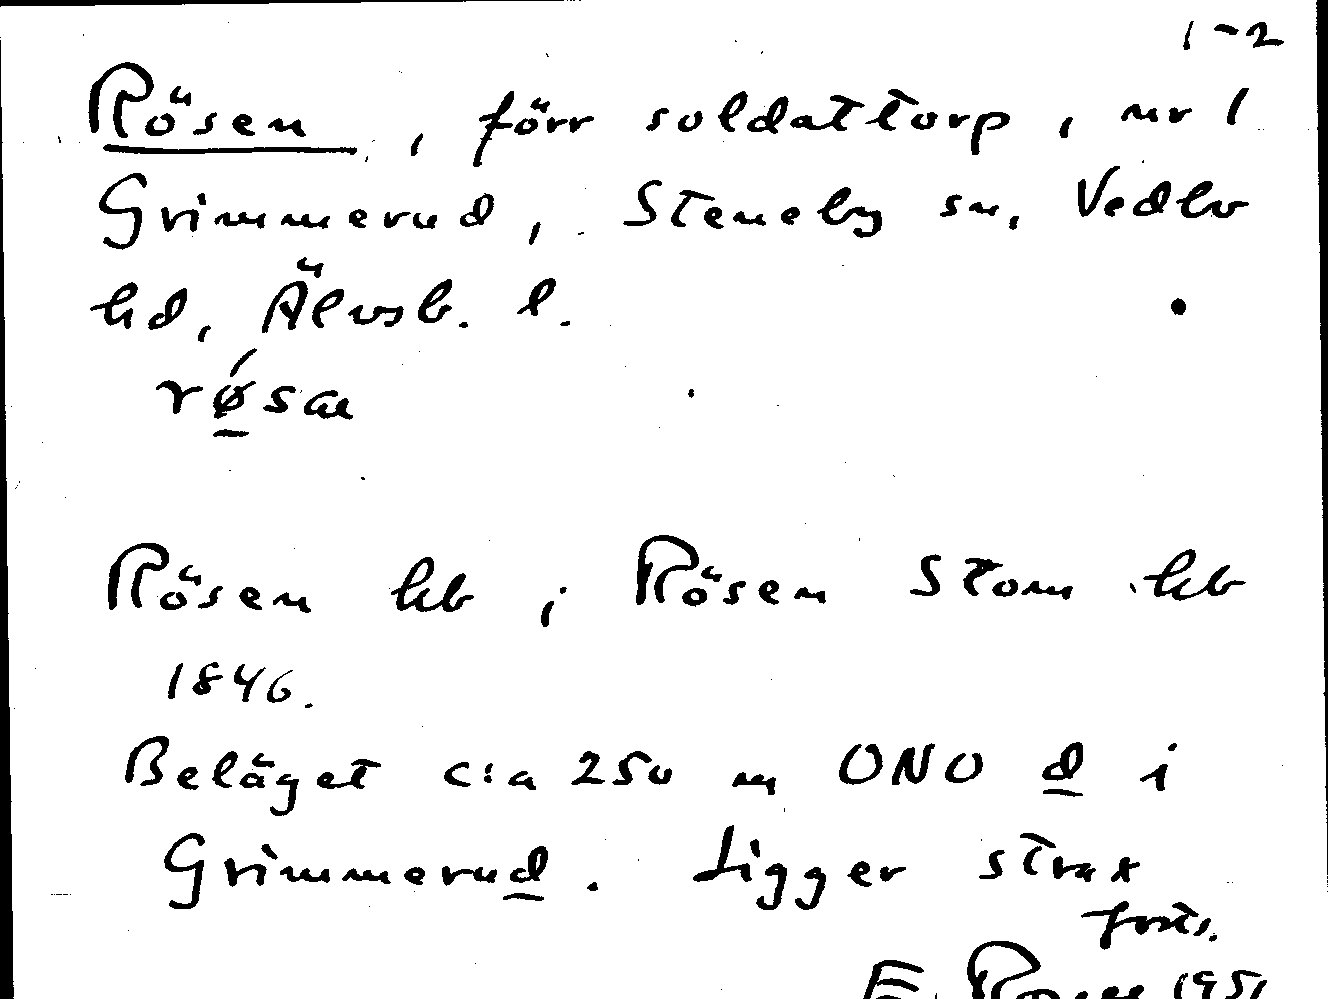 1-2
Rösen, förr soldattorp, nr 1
Grimmerud, Steneby sn, Vedbo
hd, Älvsb. l.
rǿ̱sæ
Rösen hb ; Rösen Stom hb
1846.
Beläget c:a 250 m ONO d i
Grimmerud. Ligger strax
forts.
E. 1951